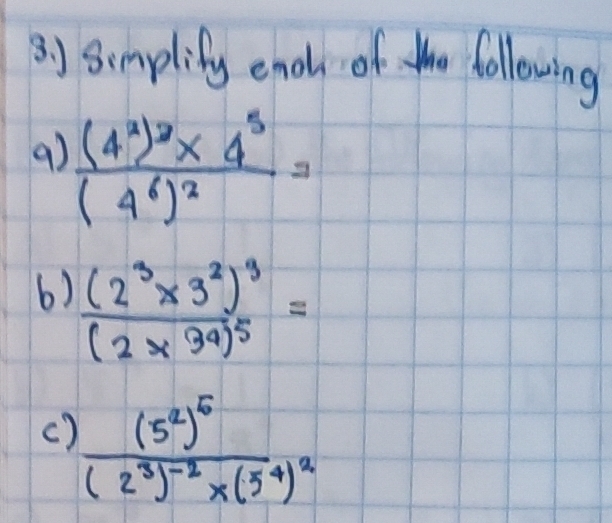 3.) Simplify each of the following
a) (4²)³ × 4⁵
(4⁶)² =
b) (2³ × 3²)³
(2 × 34)⁵ =
c) (5²)⁵
(2³)⁻² × (5⁴)²